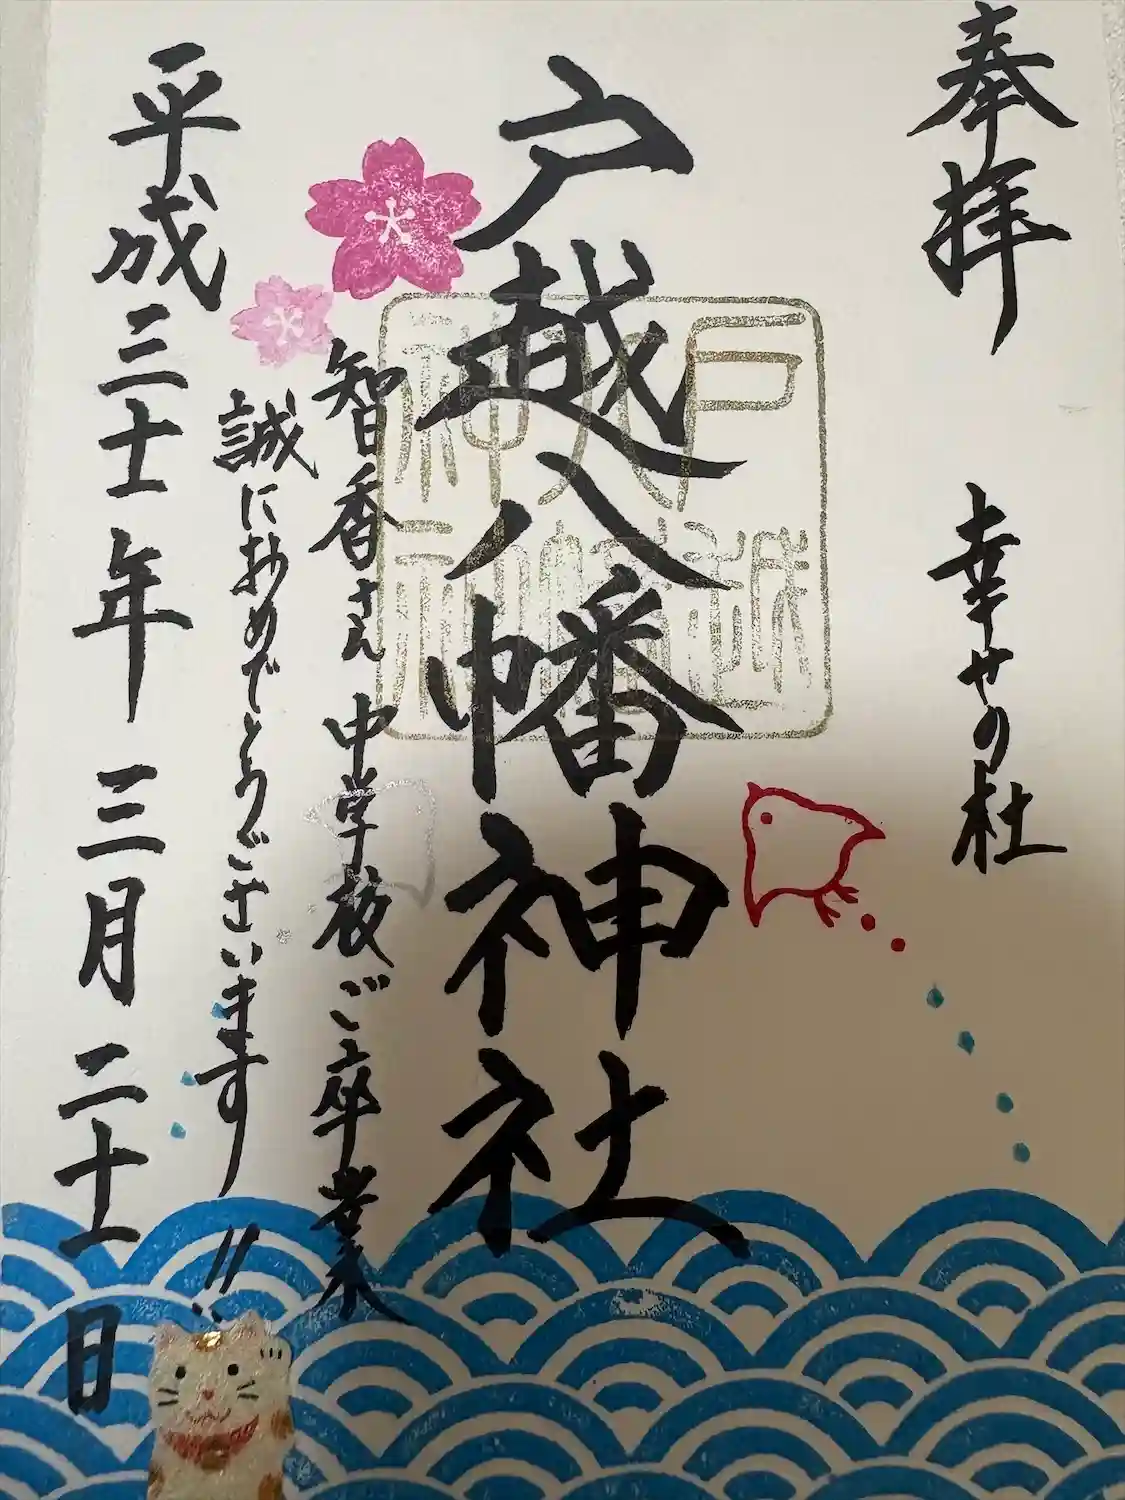 奉拝
幸せの杜
戸越八幡神社
智香さん 中学校ご卒業
誠におめでとうございます!!
平成三十一年 三月 二十一日